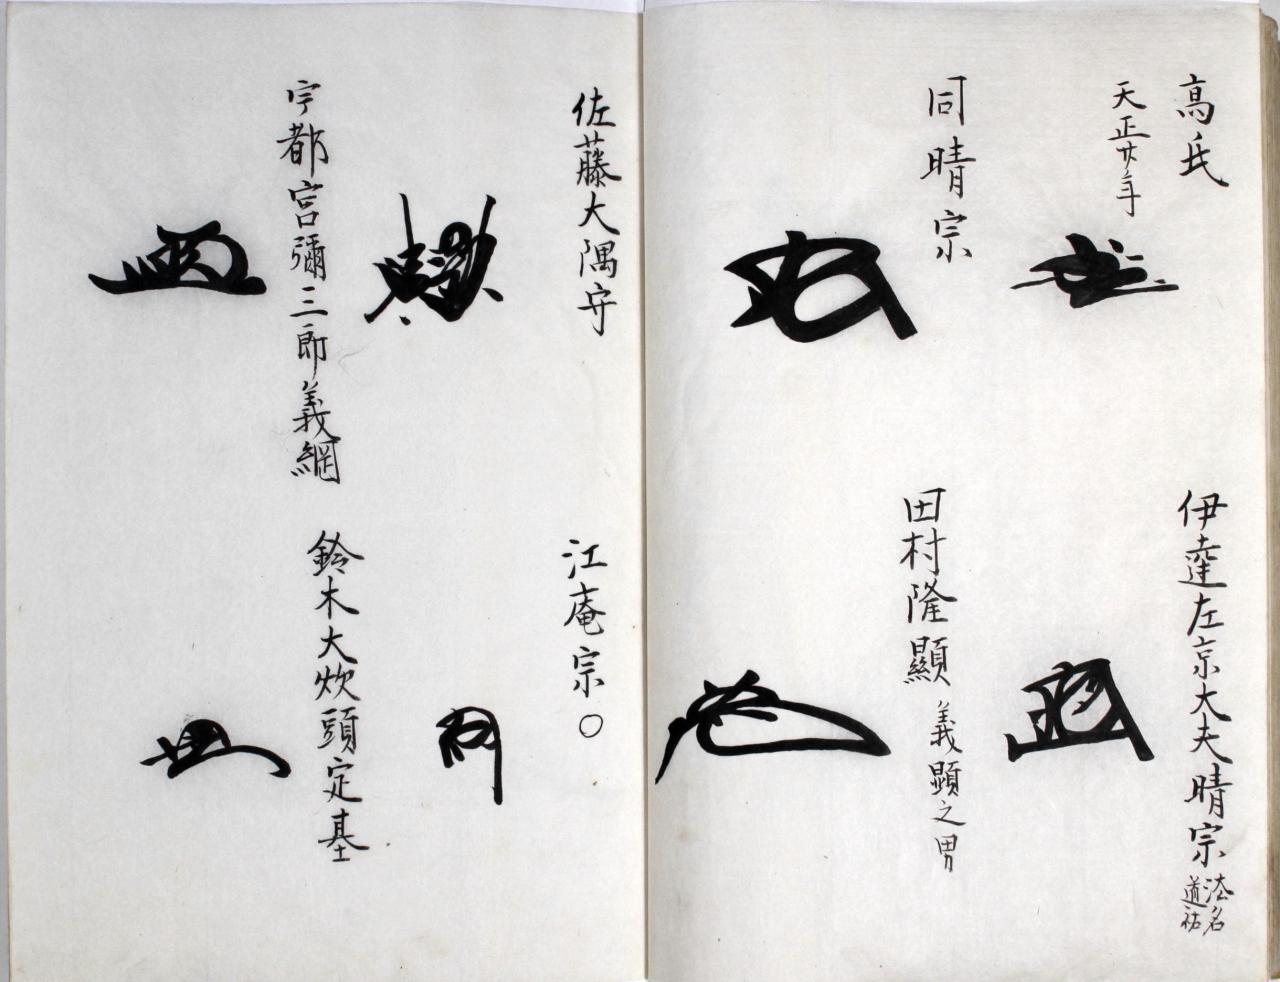 高氏
天正廿年
伊達左京大夫晴宗
法名
道祐
同晴宗
田村隆顯
義顯之男
佐藤大隅守
江庵宗○
宇都宮彌三郎義綱
鈴木大炊頭定基